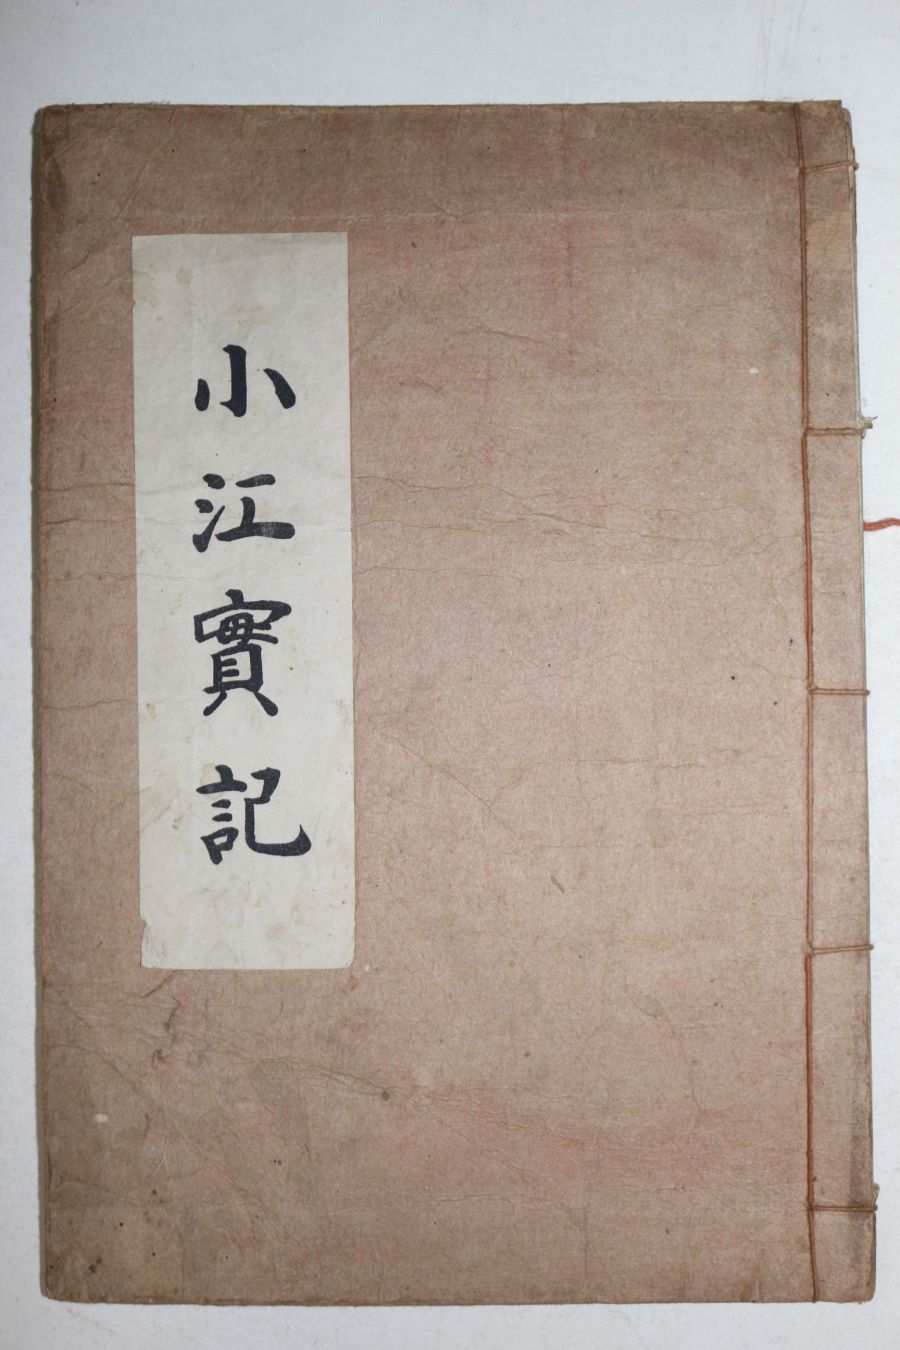 小江實記